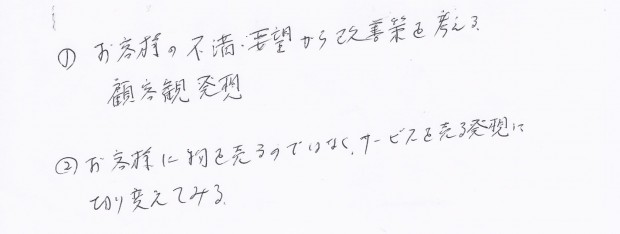 ① お客様の不満・要望から改善策を考える、
顧客観発想
② お客様に物を売るのではなく、サービスを売る発想に
切り変えてみる。